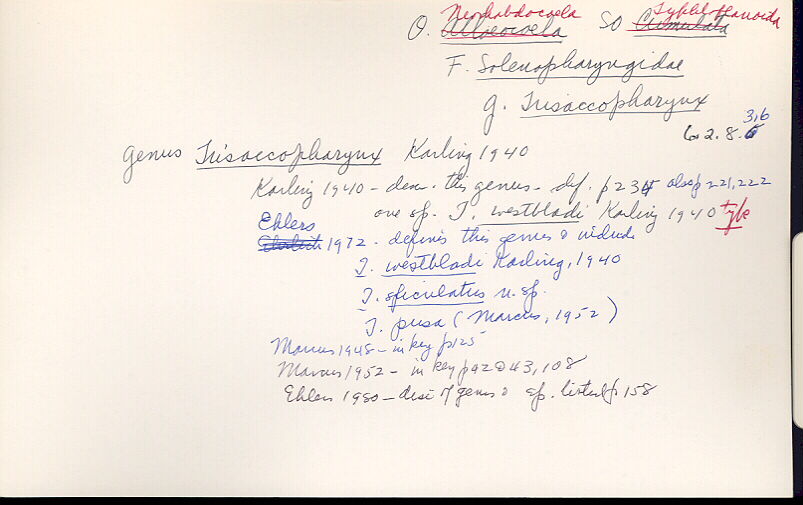 Neorhabdocoela Typhloplanoida
O. Alloeocoela SO
F. Solenopharyngidae
g. Trisaccopharynx
3,6
6.2.8.
Genus Trisaccopharynx Karling 1940
Karling 1940 - desc. this genus - def. p 234 also p 221, 222
one sp. T. westbladi Karling 1940 type
Ehlers
1972 - defines this genus & include
T. westbladi Karling, 1940
T. spiculatus n. sp.
T. pusa (Marcus, 1952)
Marcus 1948 - in key p125
Marcus 1952 - in key p 42 & 43, 108
Ehlers 1980 - disc of genus & sp. listed p 158